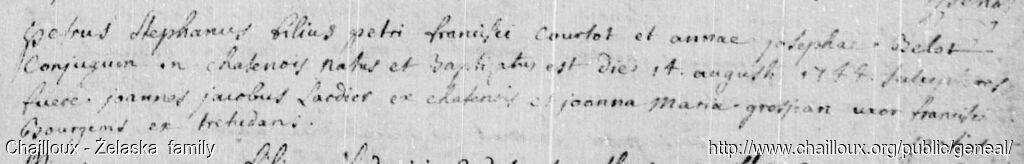 Petrus Stephanus filius petri francisci Courtot et annae josephae Belot
Conjugum in chatenois natus et Baptizatus est die 14 augusti 1744 susceptores
fuere joannes jacobus Lardier ex chatenois et joanna Maria grosjean uxor francisci
Bourgeois ex tretudans.
Chailloux - Żelaska family
http://www.chailloux.org/public/geneal/